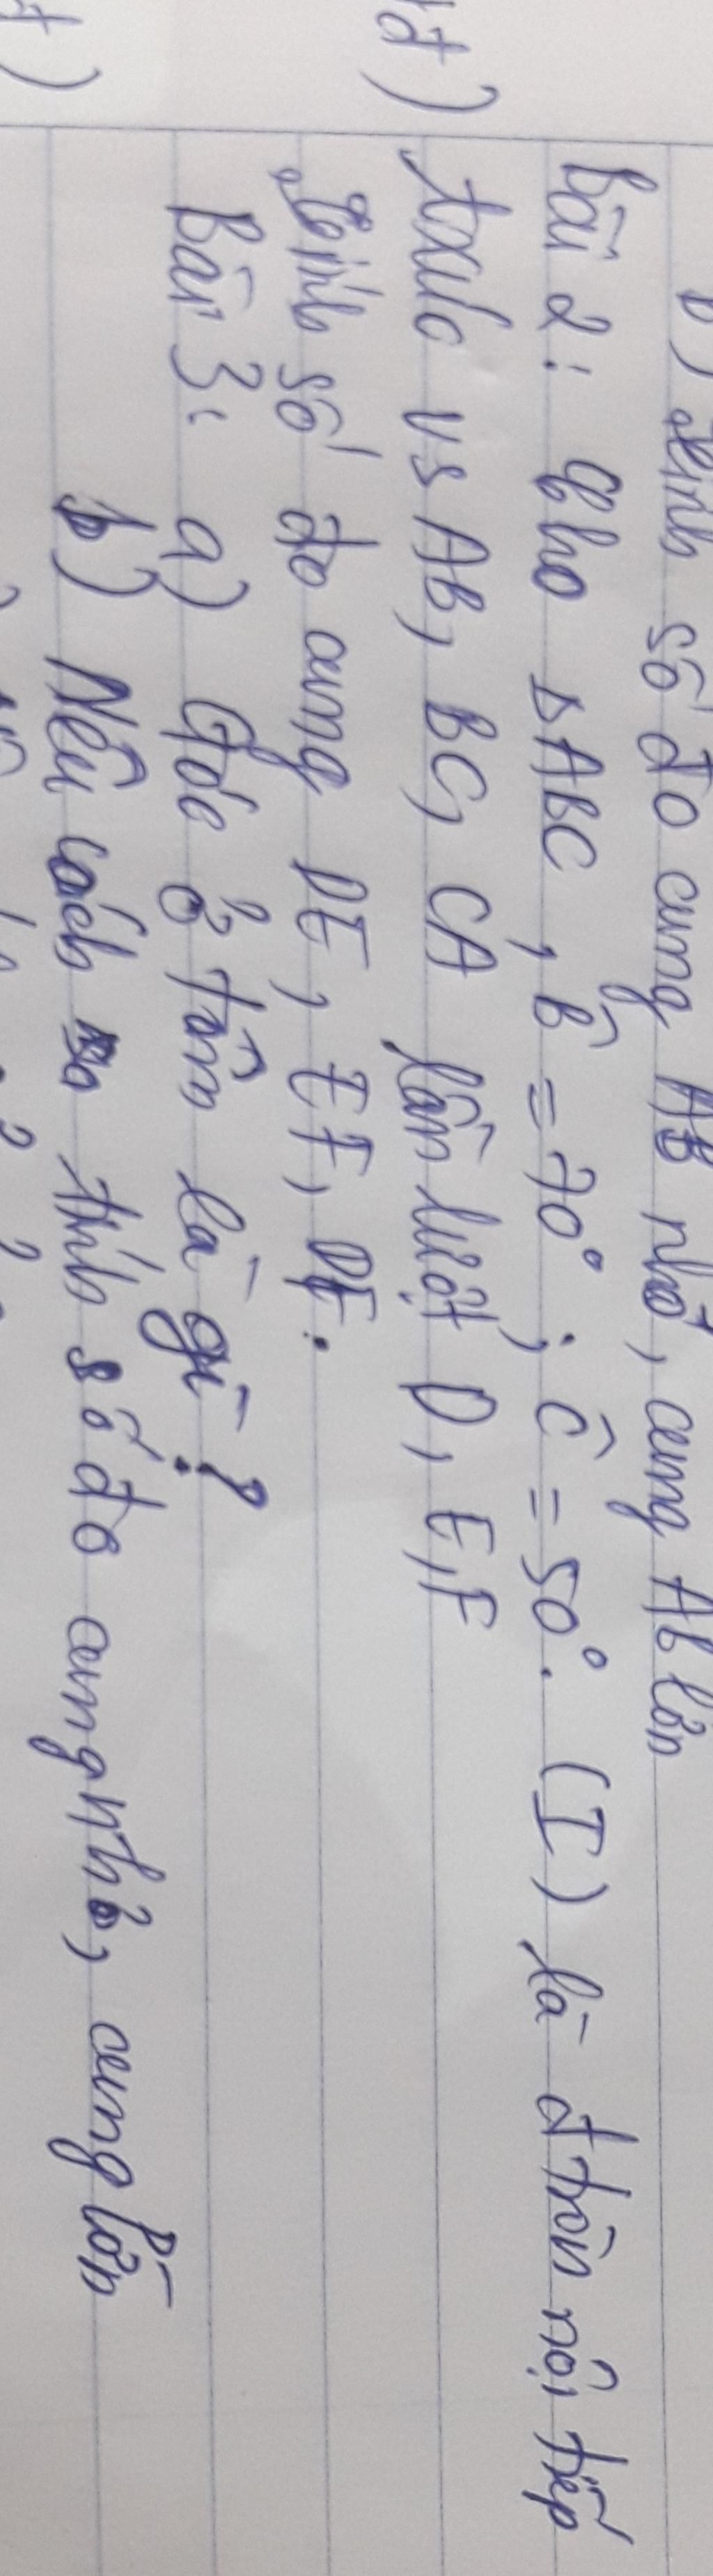 b) Tính số đo cung AB nhỏ, cung AB lớn
Bài 2: Cho ΔABC, B̂ = 70°; Ĉ = 50°. (I) là đ tròn nội tiếp
txúc vs AB, BC, CA lần lượt D, E, F
Tính số đo cung DE, EF, DF.
Bài 3: a) Góc ở tâm là gì?
b) Nêu cách tính số đo cung nhỏ, cung lớn
đ)
đ)